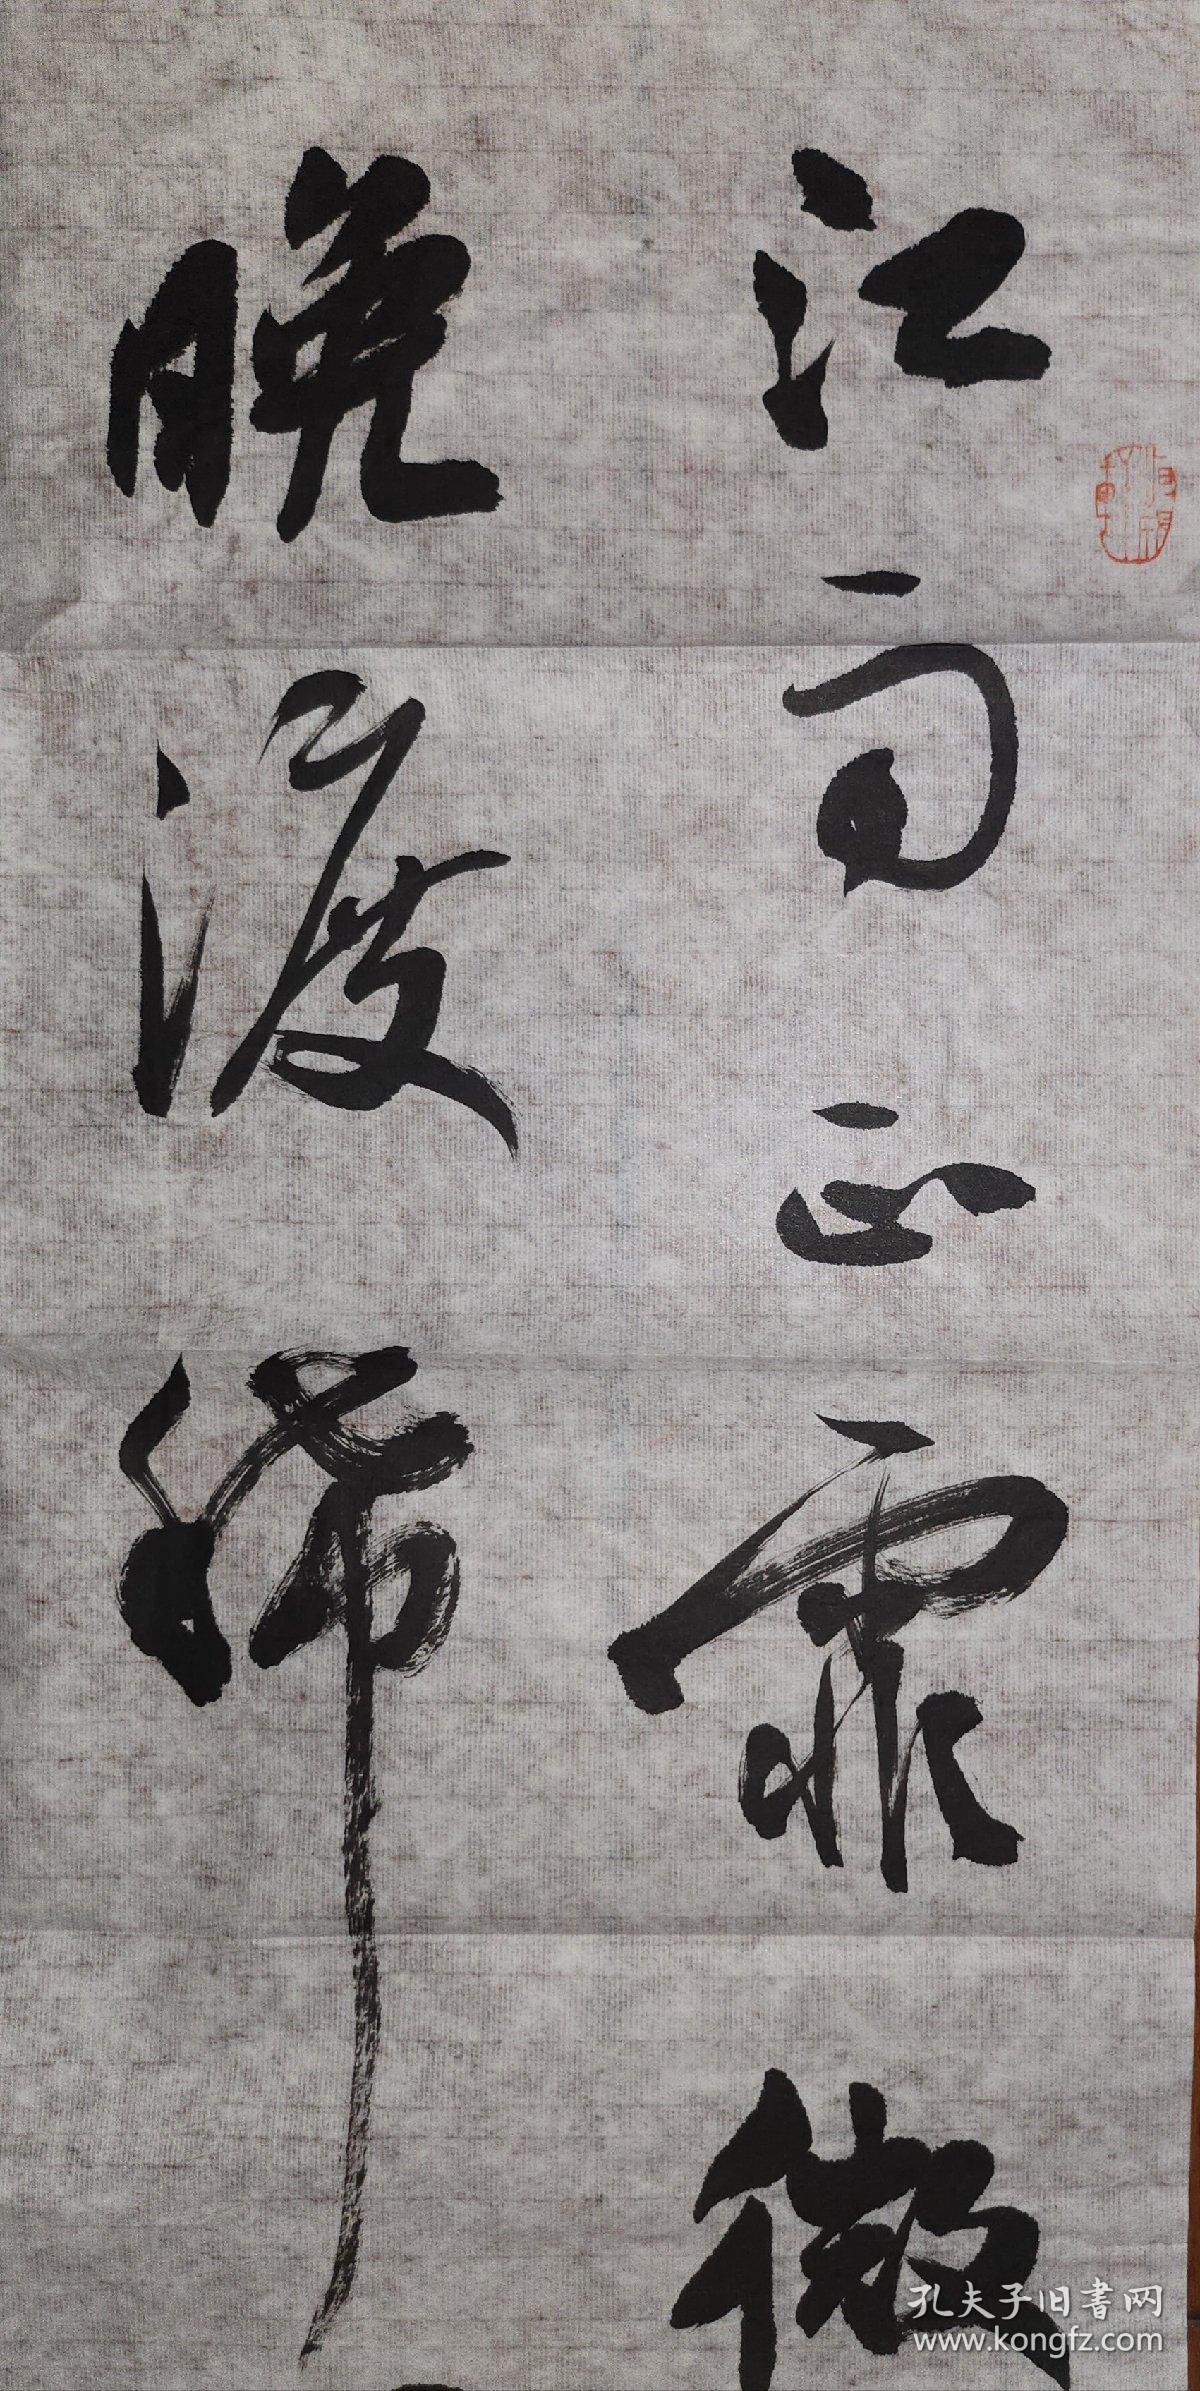 江雨正霏微
晚渡稀
孔夫子旧書网
www.kongfz.com